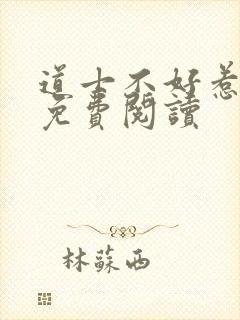 道士不好惹
免費閱讀
林蘇西